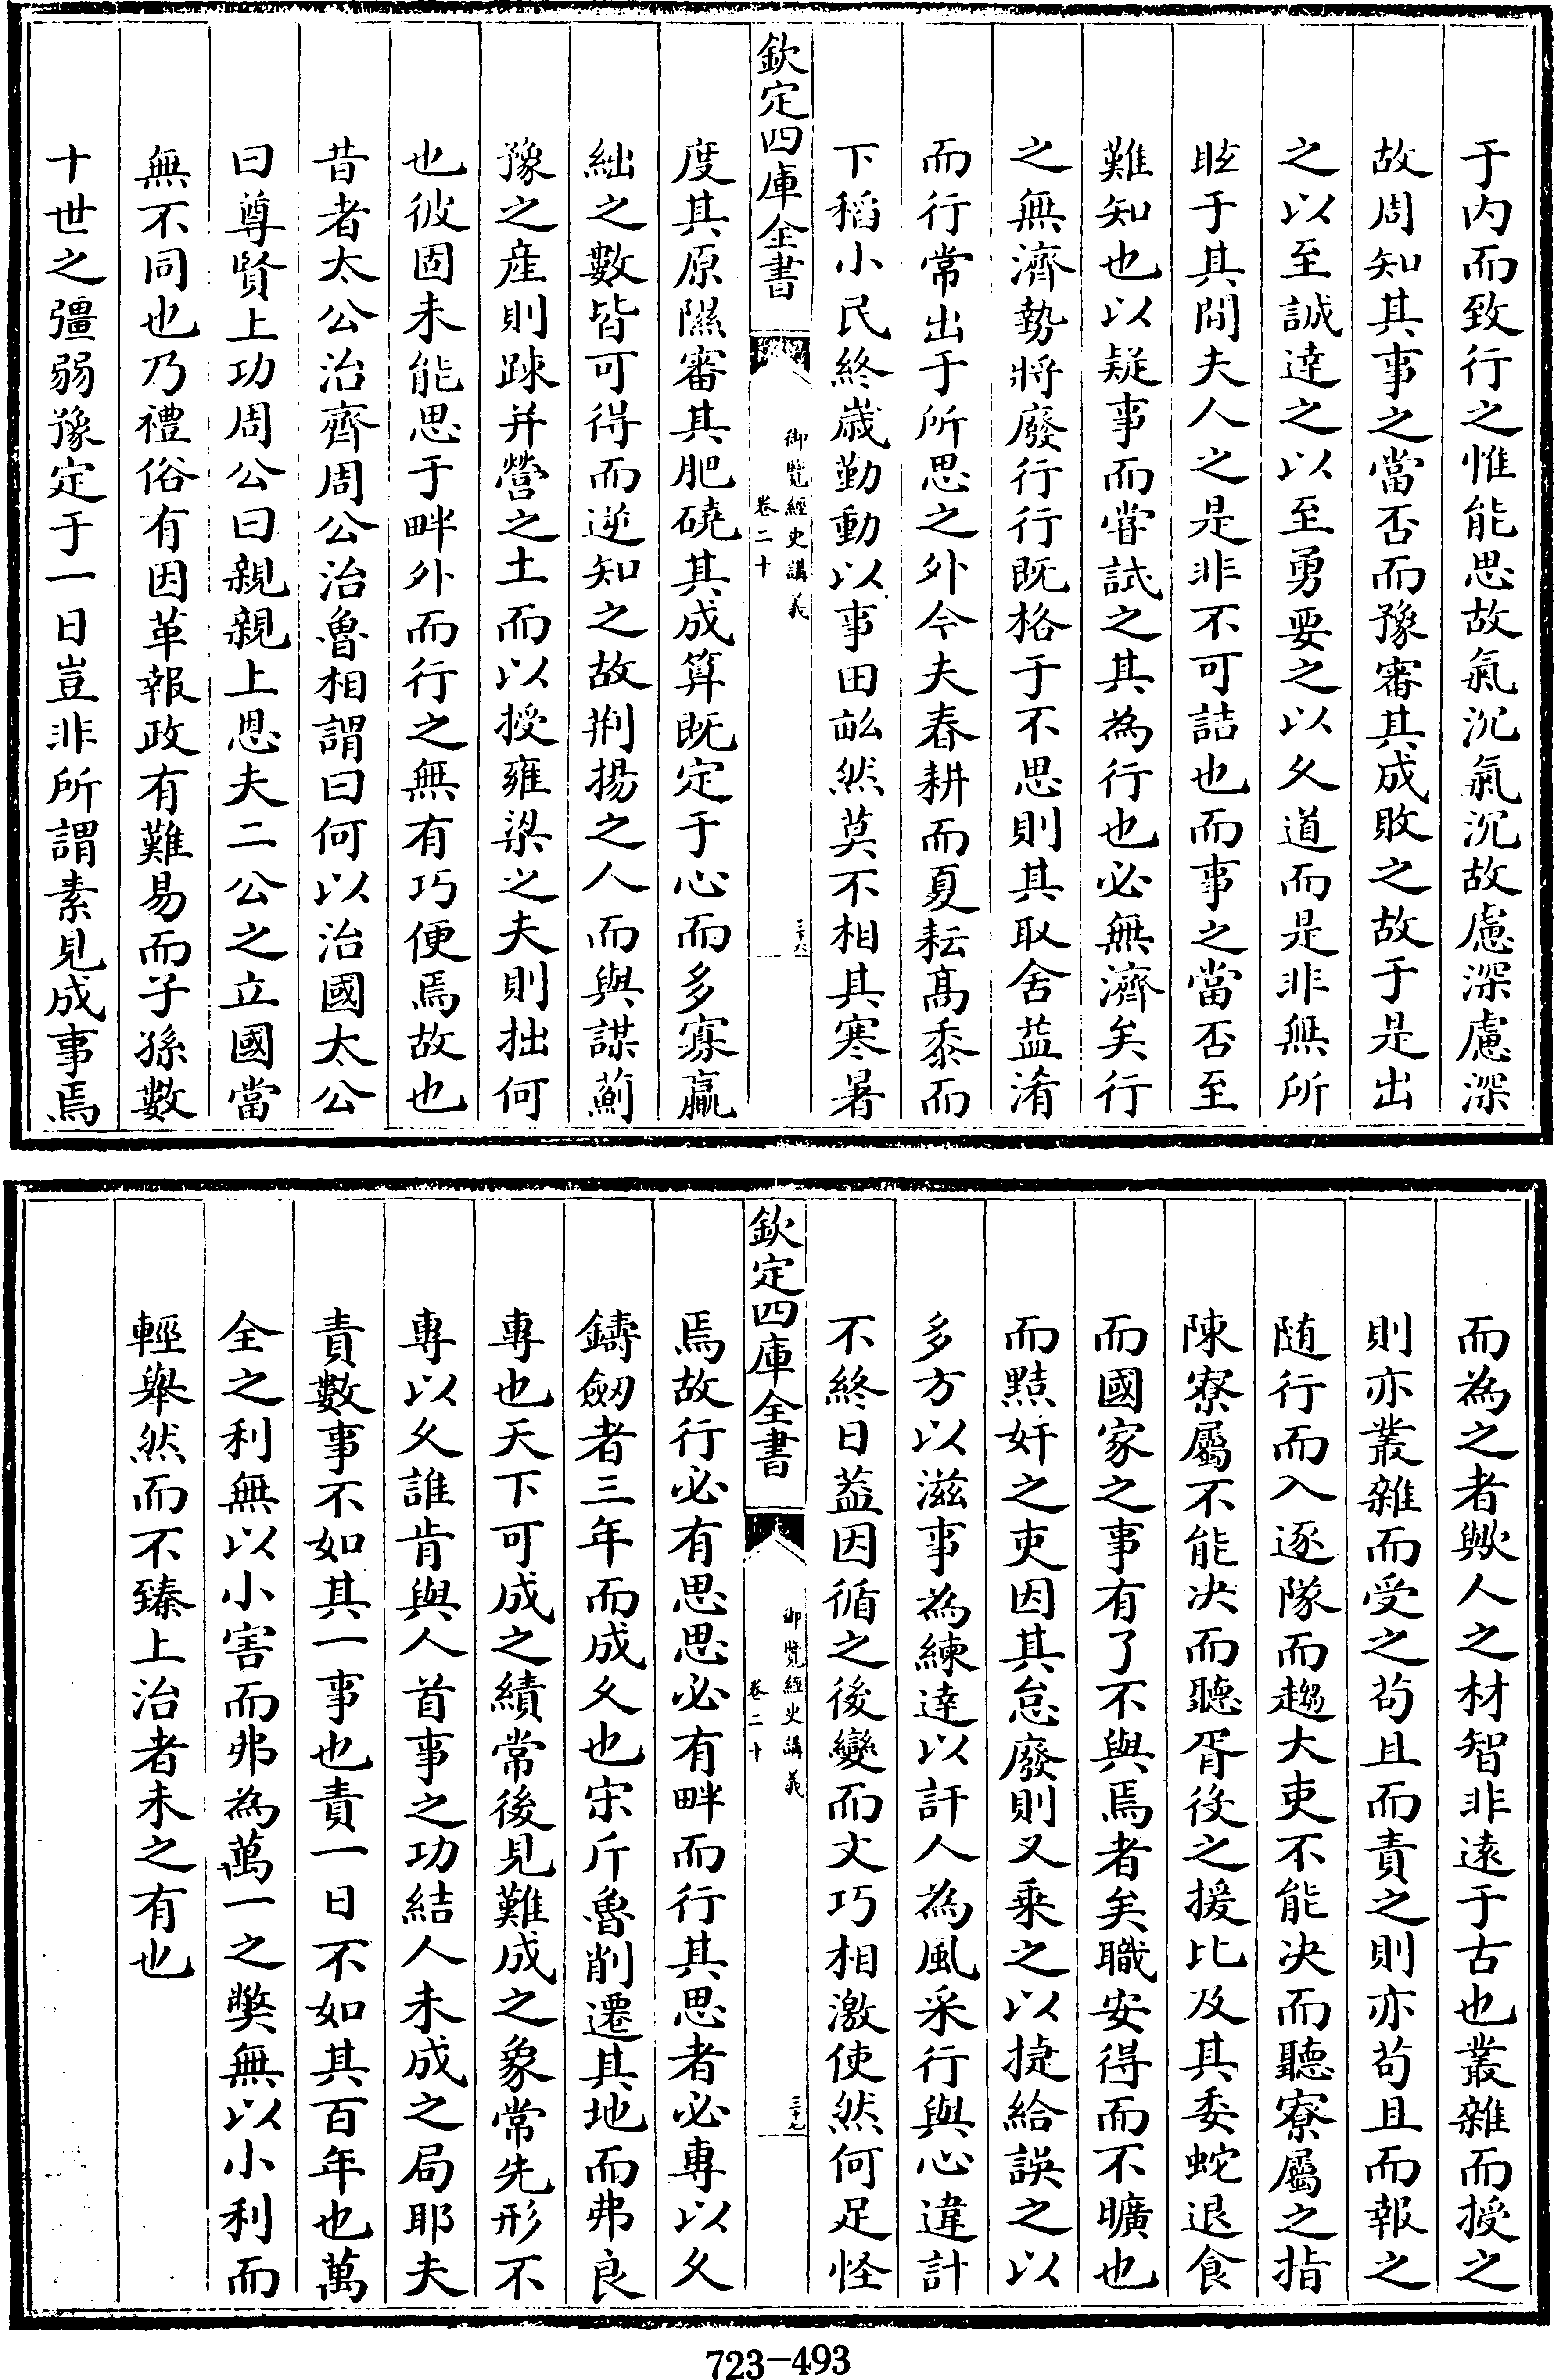 于内而致行之惟能思故氣沉氣沉故慮深慮深
故周知其事之當否而豫審其成敗之故于是出
之以至誠達之以至勇要之以久道而是非無所
眩于其間夫人之是非不可詰也而事之當否至
難知也以疑事而嘗試之其為行也必無濟矣行
之無濟勢將廢行行既格于不思則其取舍益淆
而行常出于所思之外今夫春耕而夏耘髙黍而
下稻小民終歳勤動以事田畝然莫不相其寒暑
欽定四庫全書
御覽經史講義
卷二十
三十六
度其原隰審其肥磽其成算既定于心而多寡贏
絀之數皆可得而逆知之故荆揚之人而與謀薊
豫之産則踈并營之土而以授雍梁之夫則拙何
也彼固未能思于畔外而行之無有巧便焉故也
昔者太公治齊周公治魯相謂曰何以治國太公
曰尊賢上功周公曰親親上恩夫二公之立國當
無不同也乃禮俗有因革報政有難易而子孫數
十世之彊弱豫定于一日豈非所謂素見成事焉
而為之者歟人之材智非遠于古也叢雜而授之
則亦叢雜而受之茍且而責之則亦茍且而報之
随行而入逐隊而趨大吏不能决而聽寮屬之指
陳寮屬不能决而聽胥役之援比及其委蛇退食
而國家之事有了不與焉者矣職安得而不曠也
而黠奸之吏因其怠廢則又乘之以捷給誤之以
多方以滋事為練達以訐人為風采行與心違計
不終日葢因循之後變而文巧相激使然何足怪
欽定四庫全書
御覽經史講義
卷二十
三十七
焉故行必有思思必有畔而行其思者必專以久
鑄劒者三年而成久也宋斤魯削遷其地而弗良
專也天下可成之績常後見難成之象常先形不
專以久誰肯與人首事之功結人未成之局耶夫
責數事不如其一事也責一日不如其百年也萬
全之利無以小害而弗為萬一之獘無以小利而
輕舉然而不臻上治者未之有也
723-493